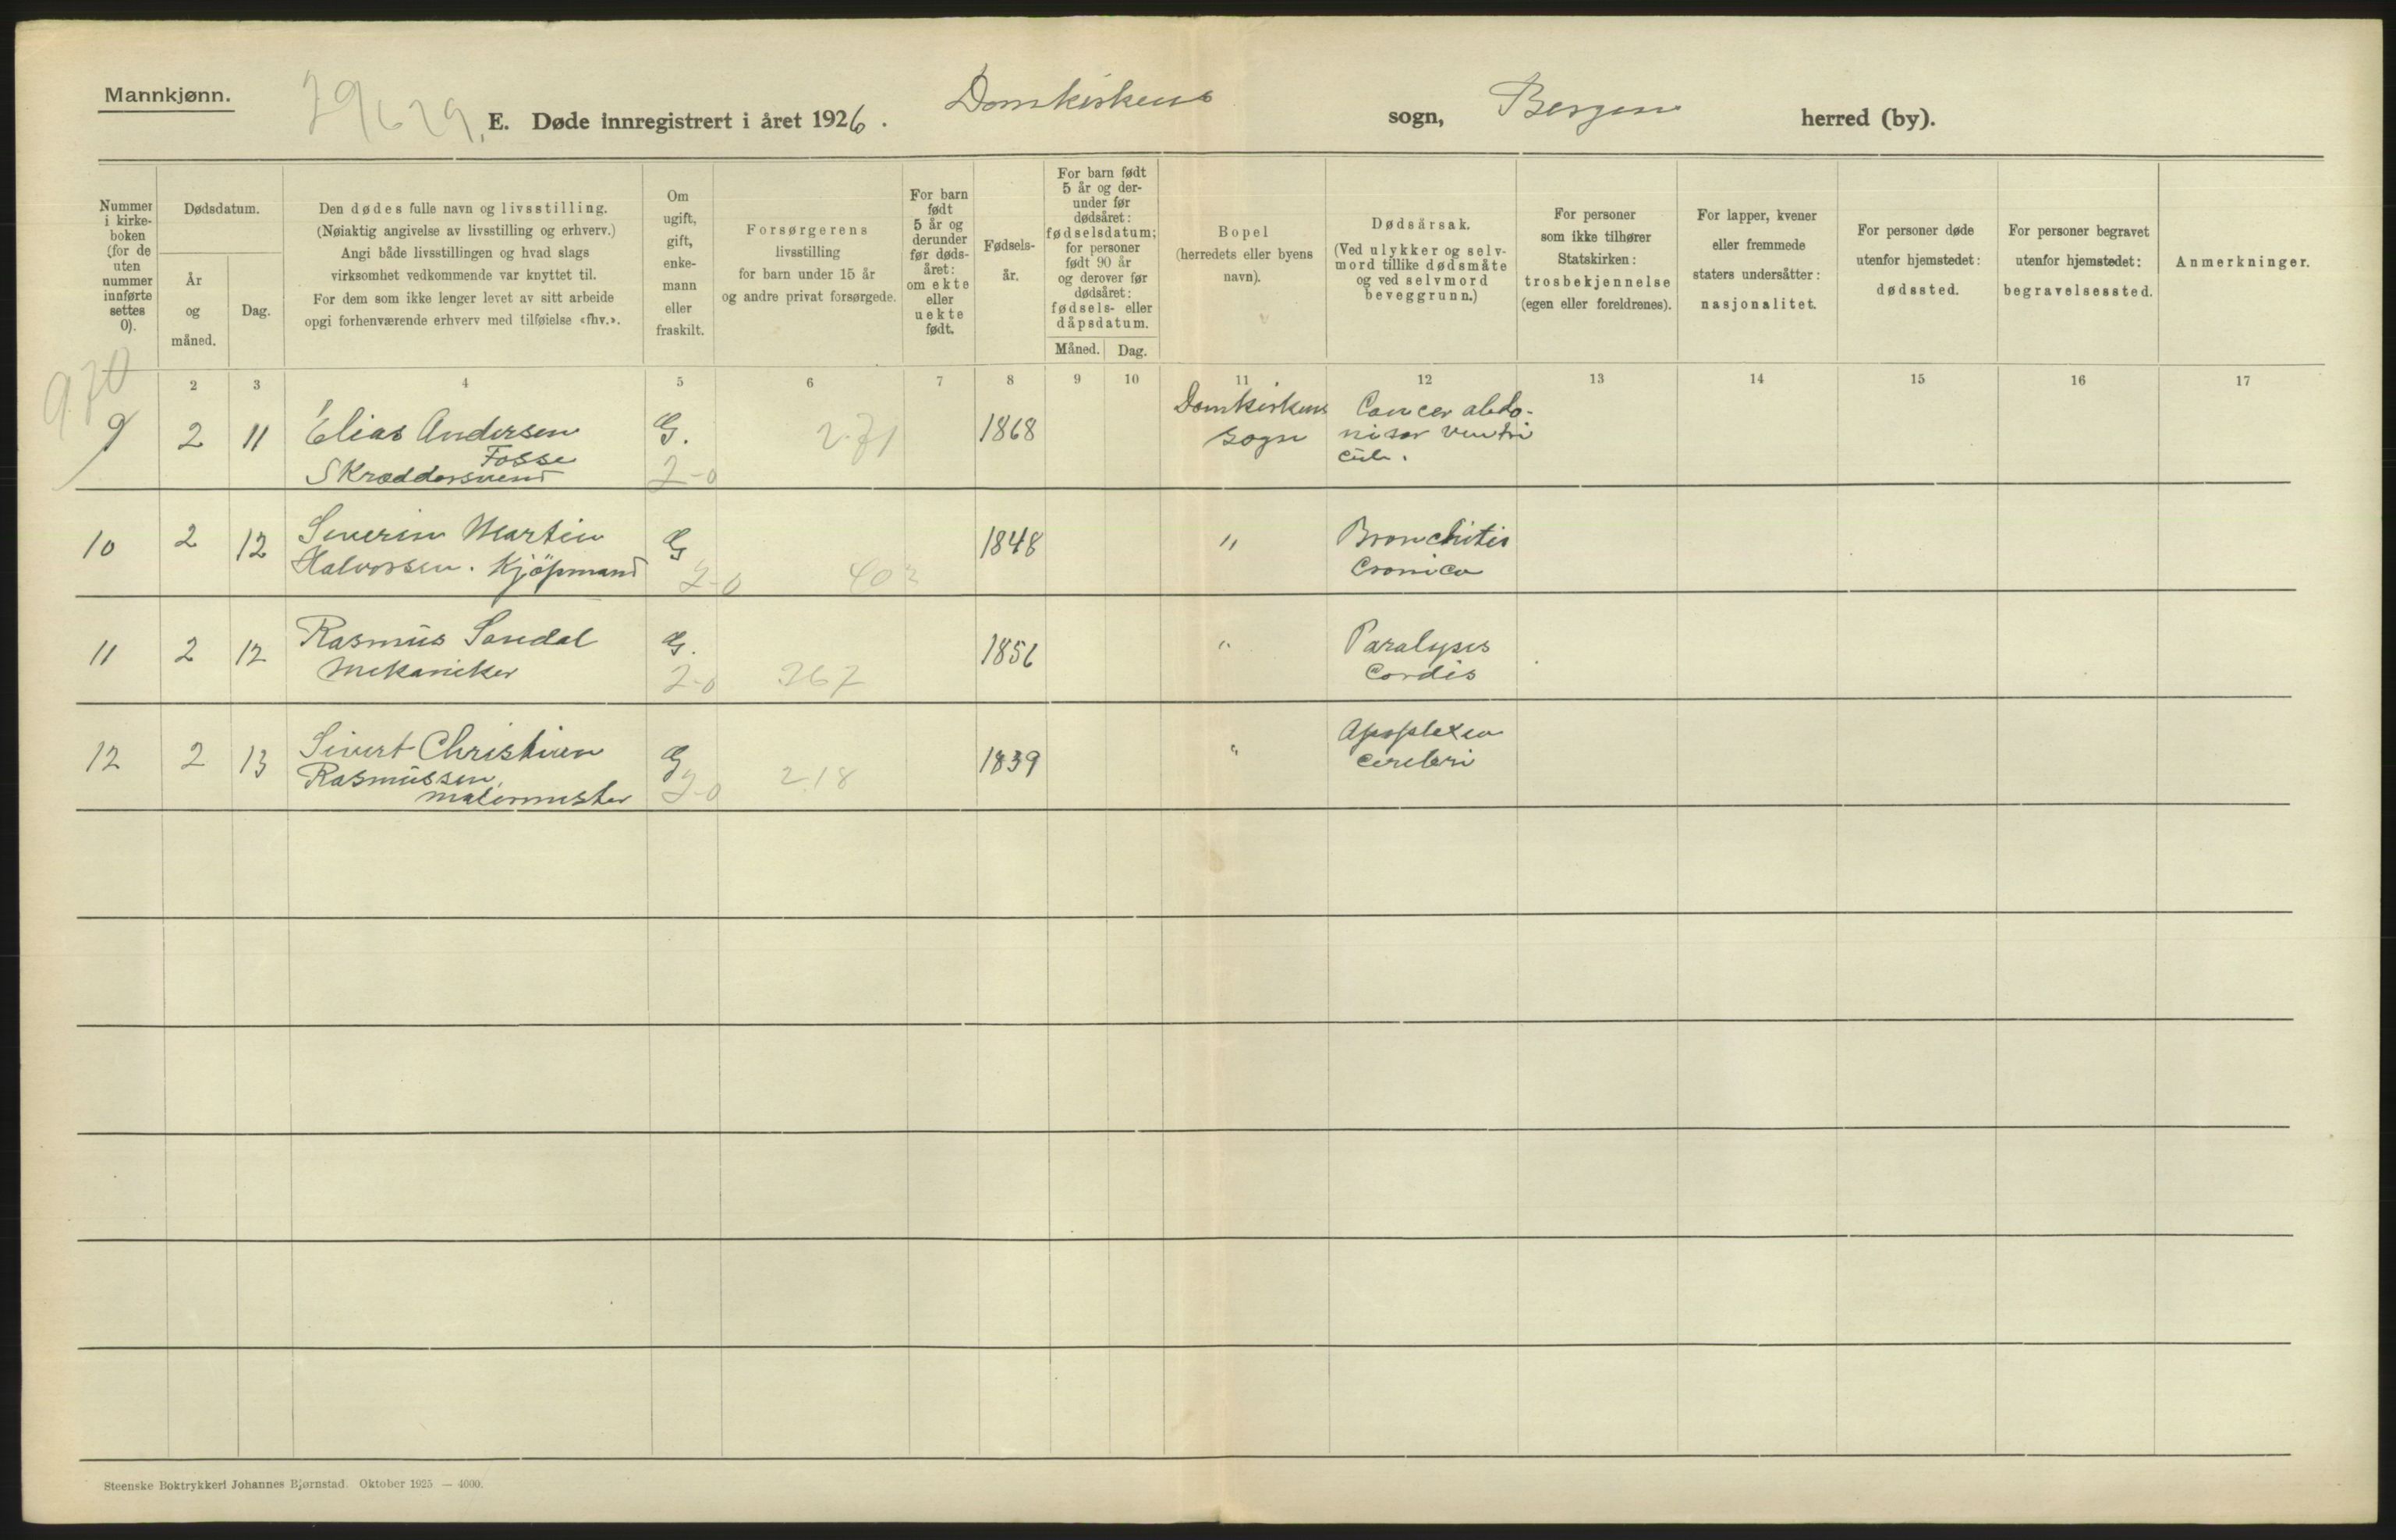 Mannkjønn.
E. Døde innregistrert i året 1926. Domkirkens sogn, Bergen herred (by).
Nummer i kirke- boken (for de uten nummer innførte settes 0).
Dødsdatum.
År og måned.
Dag.
Den dødes fulle navn og livsstilling.
(Nøiaktig angivelse av livsstilling og erhverv.)
Angi både livsstillingen og hvad slags
virksomhet vedkommende var knyttet til.
For dem som ikke lenger levet av sitt arbeide
opgi forhenværende erhverv med tilføielse «fhv.».
Om ugift, gift, enke- mann eller fraskilt.
Forsørgerens
livsstilling
for barn under 15 år
og andre privat forsørgede.
For barn født 5 år og derunder før døds- året: om ekte eller uekte født.
Fødsels- år.
For barn født 5 år og der- under før dødsåret: fødselsdatum; for personer født 90 år og derover før dødsåret: fødsels- eller dåpsdatum.
Måned. Dag.
Bopel
(herredets eller byens
navn).
Dødsårsak.
(Ved ulykker og selv-
mord tillike dødsmåte
og ved selvmord
beveggrunn.)
For personer
som ikke tilhører
Statskirken:
trosbekjennelse
(egen eller foreldrenes).
For lapper, kvener
eller fremmede
staters undersåtter:
nasjonalitet.
For personer døde
utenfor hjemstedet:
dødssted.
For personer begravet
utenfor hjemstedet:
begravelsessted.
Anmerkninger.
2 3 4 5 6 7 8 9 10 11 12 13 14 15 16 17
9 2 11 Elias Andersen G. 1868 Domkirkens Cancer abdo-
Fosse sogn
Skræddersvend 2-0 271
10 2 12 Severin Martin G 1848 " Bronchitis
Halvorsen. Kjöpmand 2-0 403 Cronica
11 2 12 Rasmus Sandal G. 1856 " Paralysis
Mekaniker 2-0 267 Cordis
12 2 13 Sivert Christian G 1839 " Apoplexia
Rasmussen, 2-0 218 Cerebri
malermester
Steenske Boktrykkeri Johannes Bjørnstad. Oktober 1925 — 4000.